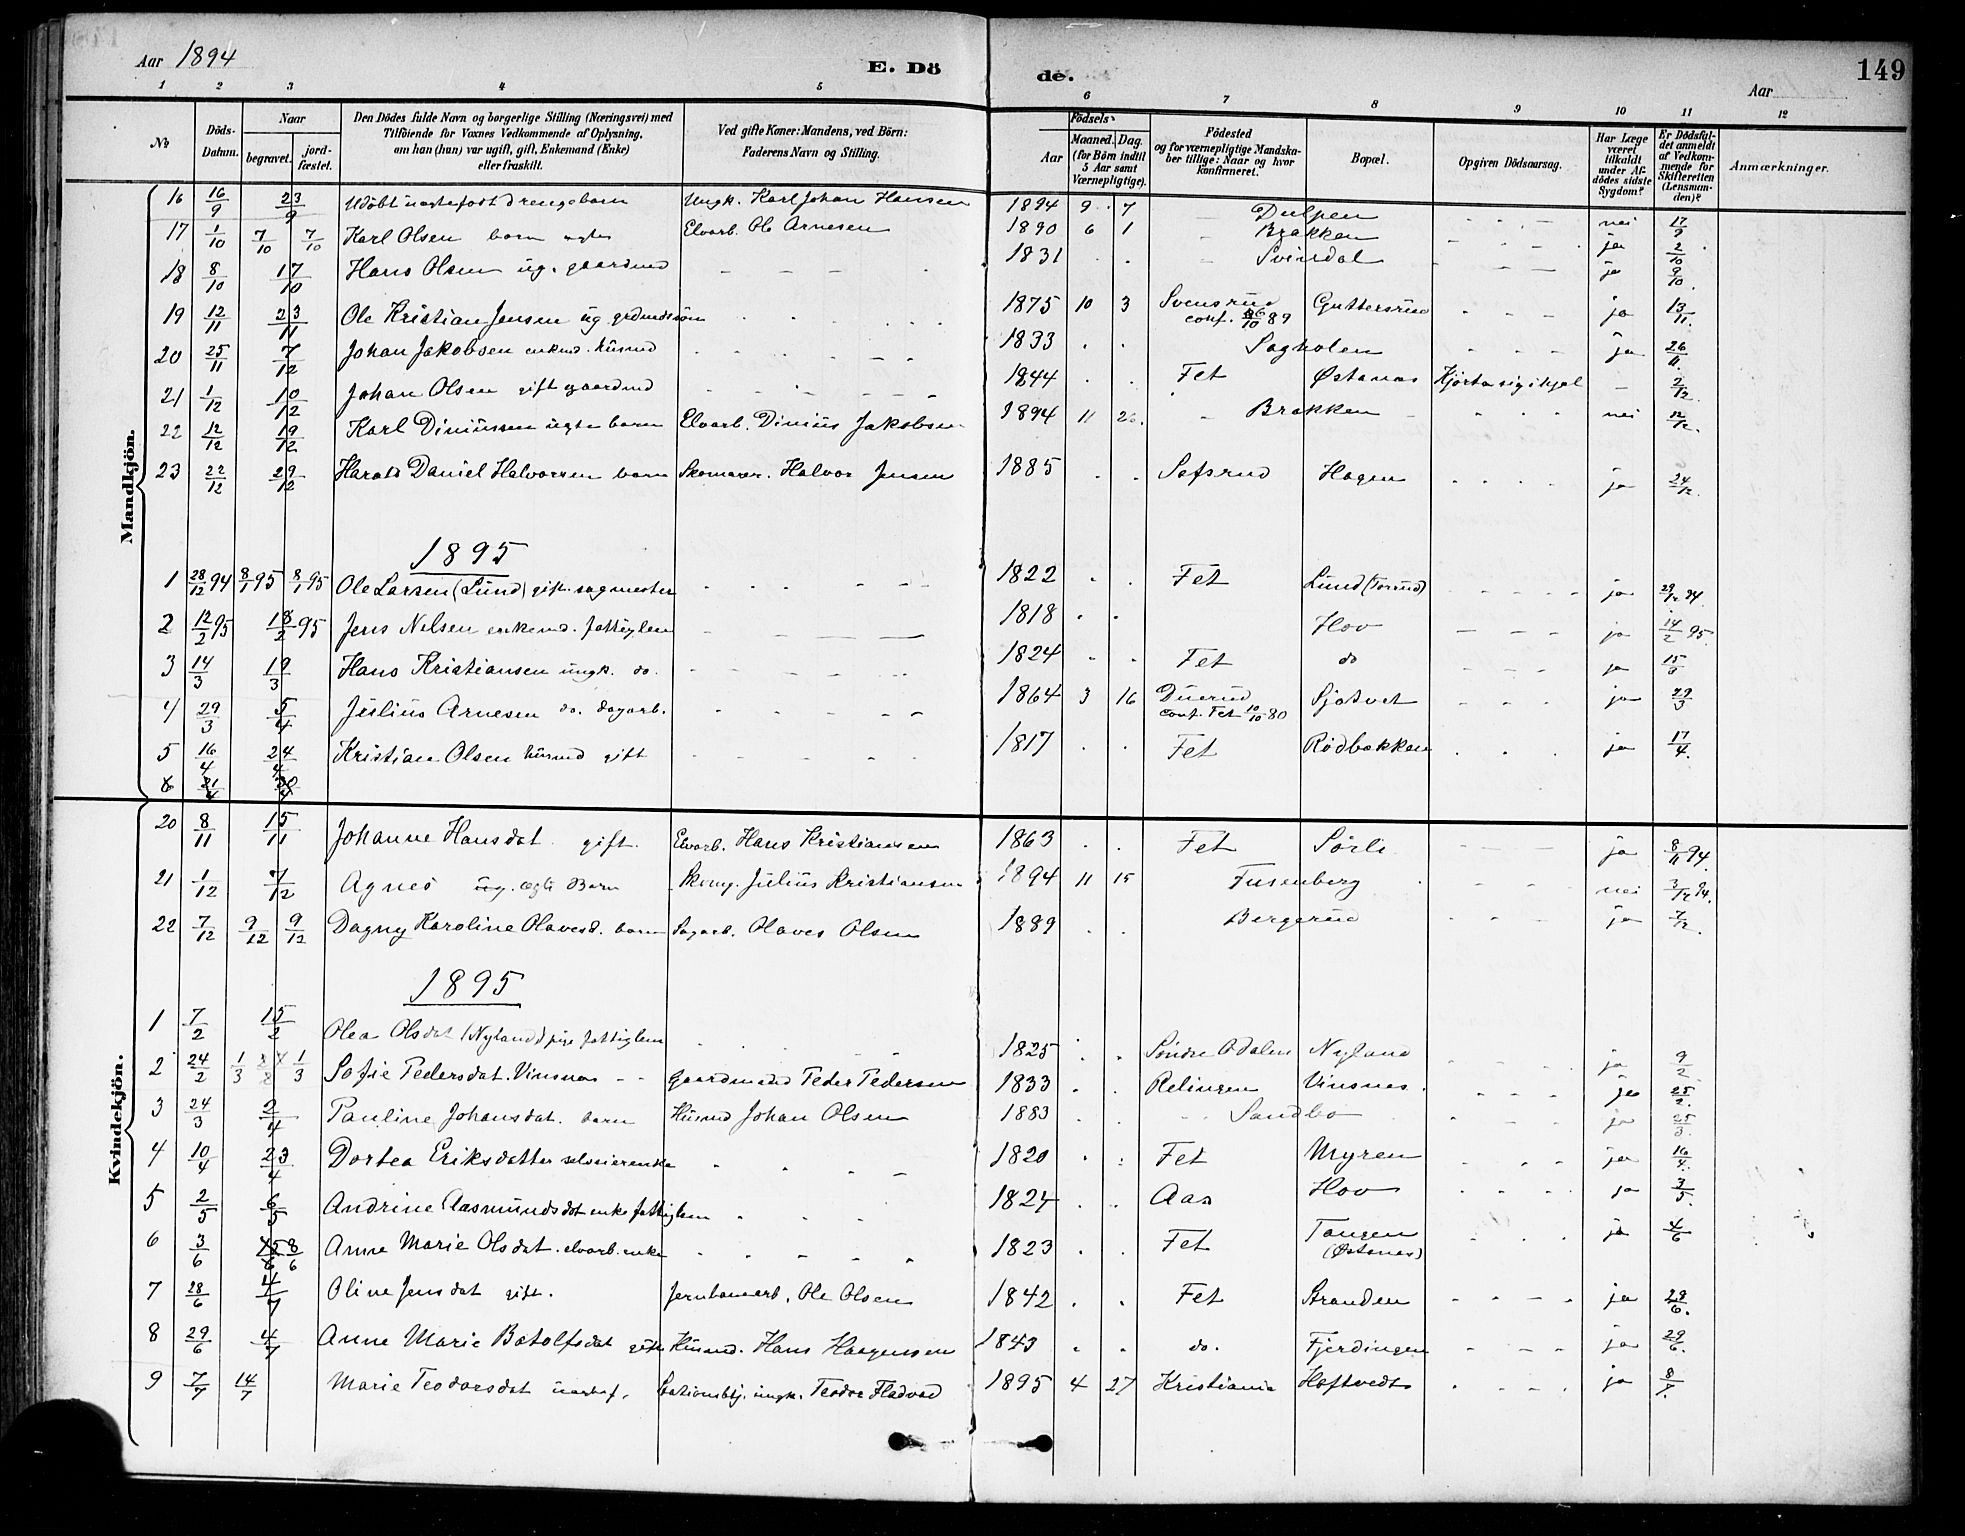 Aar 1894
E. Dö
de.
149
Aar
1 2 3 4 5 6 7 8 9 10 11 12
No
Döds-Datum.
Naar
begravet.
jord-fæstet.
Den Dödes fulde Navn og borgerlige Stilling (Næringsvei) med
Tilföiende for Voxnes Vedkommende af Oplysning,
om han (hun) var ugift, gift, Enkemand (Enke)
eller fraskilt.
Ved gifte Koner: Mandens, ved Börn:
Faderens Navn og Stilling.
Födsels-
Aar
Maaned. Dag.
(for Börn indtil
5 Aar samt
Værnepligtige).
Födested
og for værnepligtige Mandska-
ber tillige: Naar og hvor
konfirmeret.
Bopæl.
Opgiven Dödsaarsag.
Har Læge
været
tilkaldt
under Af-
dödes sidste
Sygdom?
Er Dödsfal-
det anmeldt
af Vedkom-
mende for
Skifteretten
(Lensman-
den)?
Anmærkninger.
Mandkjön.
16 16/9 23/9 Udøbt uægtefødt drengebarn Ungk. Karl Johan Hansen 1894 9 7 Dulpen nei 17/9
17 1/10 7/10 7/10 Karl Olsen barn ægte Elvarb. Ole Arnesen 1890 6 1 Brakken ja 2/10
18 8/10 17/10 Hans Olsen ug. gaardmd 1831 Svindal ja 9/10
19 12/11 23/11 Ole Kristian Jensen ug grdmdssøn 1875 10 3 Svensrud conf. /10 89 Guttersrud ja 13/11.
20 25/11 7/12 Johan Jakobsen enkmd. husmd 1833 Sagholen ja 26/11.
21 1/12 10/12 Johan Olsen gift gaardmd 1844 Fet Østanæs - 2/12.
22 12/12 19/12 Karl Diniussen ægte barn Elvarb. Dinius Jakobsen 1894 11 Brakken nei 12/12.
23 22/12 29/12 Harald Daniel Halvorsen barn Skomager. Halvor Jensen 1885 Hagen ja 24/12.
1895
1 28/12 94 8/1 95 8/1 95 Ole Larsen (Lund) gift. sagmester 1822 Fet Lund (Torrud) ja 29/12 94.
2 12/2 95 18/2 95 Jens Nilsen enkemd. fattiglem 1818 Hov ja 14/2 95
3 14/3 19/3 Hans Kristiansen ungk. do. 1824 Fet do ja 15/3
4 29/3 5/4 Julius Arnesen do. dagarb. 1864 3 16 Duerud conf. Fet 10/10 80 Sjøtvet ja 29/3
5 16/4 24/4 Kristian Olsen husmd gift 1817 Fet Rødbakken ja 17/4.
6 21/4 30/4
Kvindekjön.
20 8/11 15/11 Johanne Hansdat. gift. Elvarb. Hans Kristiansen 1863 Fet Sørli ja 8/11 94.
21 1/12 7/12 Agnes ug. ægte Barn Skomg. Julius Kristiansen 1894 11 15 Tusenberg nei 3/12 94.
22 7/12 9/12 9/12 Dagny Karoline Olavesd. barn Sagarb. Olaves Olsen 1889 Bergerud ja 7/12.
1895
1 7/2 15/2 Olea Olsdat (Nyland) pige fattiglem 1825 Søndre Odalen Nyland ja 9/2
2 24/2 1/3 1/3 Sofie Pedersdat. Vinsnæs - - Gaardmand Peder Pedersen 1833 Relingen Vinsnes. ja 25/2.
3 24/3 2/4 Pauline Johansdat. barn Husmd Johan Olsen 1883 Sandbo ja 25/3.
4 10/4 23/4 Dortea Eriksdatter selveierenke 1820 Fet Myren ja 16/4.
5 2/5 6/5 Andrine Aasmundsdat enke fattiglem 1824 Aas Hov ja 3/5.
6 3/6 8/6 Anne Marie Olsdat. elvarb. enke 1823 Fet Tangen (Østanæs) ja 4/6
7 28/6 4/7 Oline Jensdat gift. Jernbanearb. Ole Olsen 1842 Fet Stranden ja 29/6.
8 29/6 4/7 Anne Marie Botolfsdat gift Husmd. Hans Haagensen 1843 do. Fjerdingen ja 29/6.
9 7/7 14/7 Marie Teodorsdat uægtef. Stationsbtj. ungk. Teodor Fladvad 1895 4 27 Kristiania Høftvedt ja 8/7.